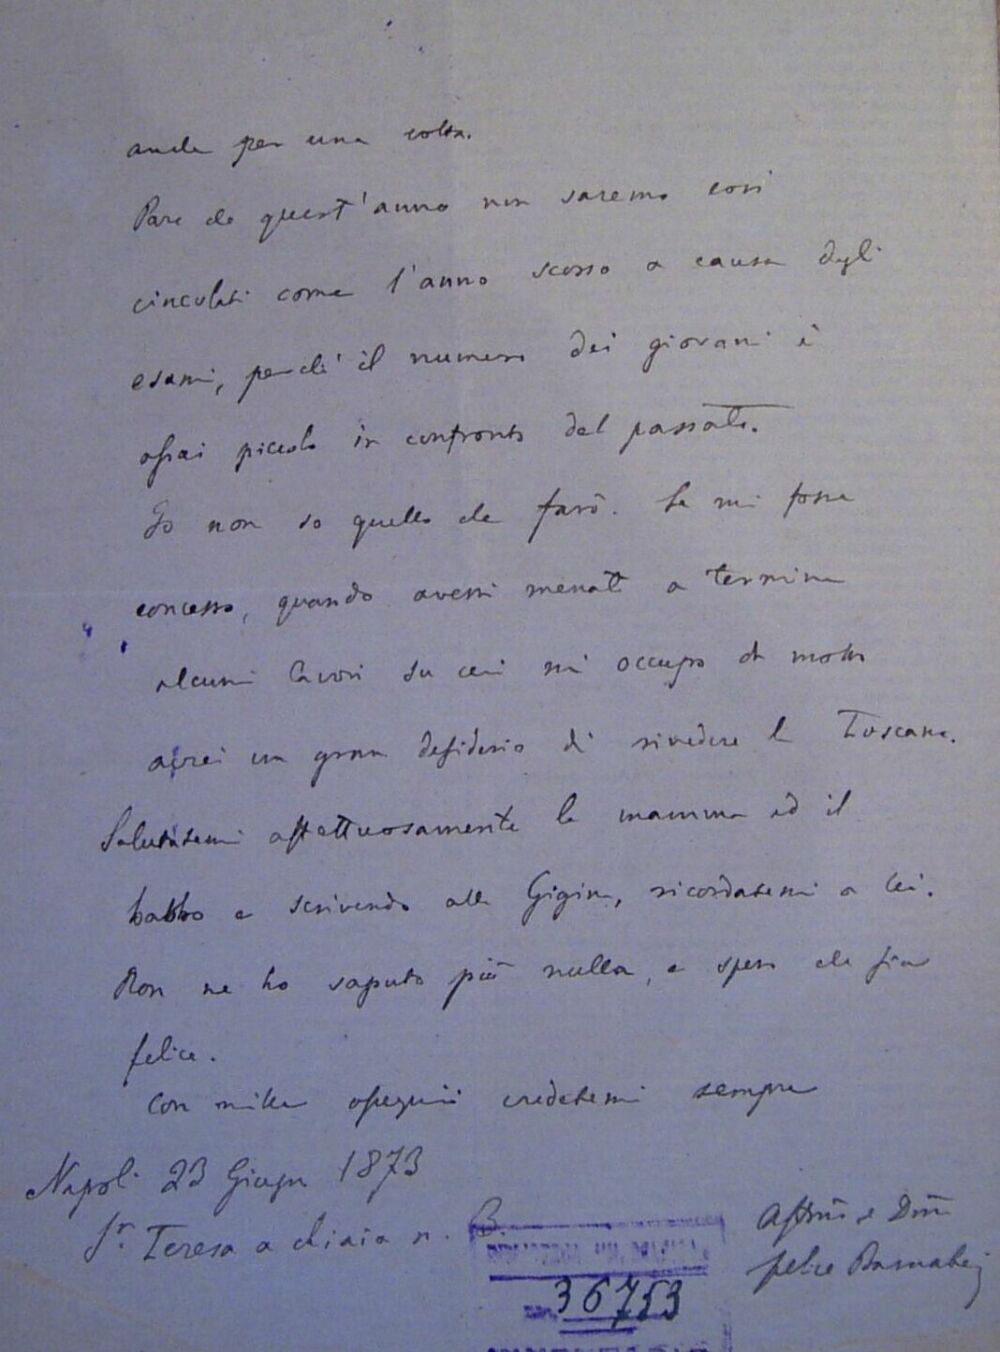 anche per una volta.
Pare che quest'anno non saremo così
cinculati come l'anno scorso a causa degli
esami, perchè il numero dei giovani è
assai piccolo in confronto del passato.
Io non so quello che farò. Se mi fosse
concesso, quando avessi menato a termine
alcuni lavori su cui mi occupo di molto
avrei un gran desiderio di rivedere la Toscana.
Salutatemi affettuosamente la mamma ed il
babbo e scrivendo alla Gigina, ricordatemi a lei.
Non ne ho saputo più nulla, e spero che sia
felice.
Con mille ossequii credetemi sempre
Napoli 23 Giugno 1873
Sr. Teresa a Chiaia n.
Affmo e Dmo
Felice Barnabei
36753